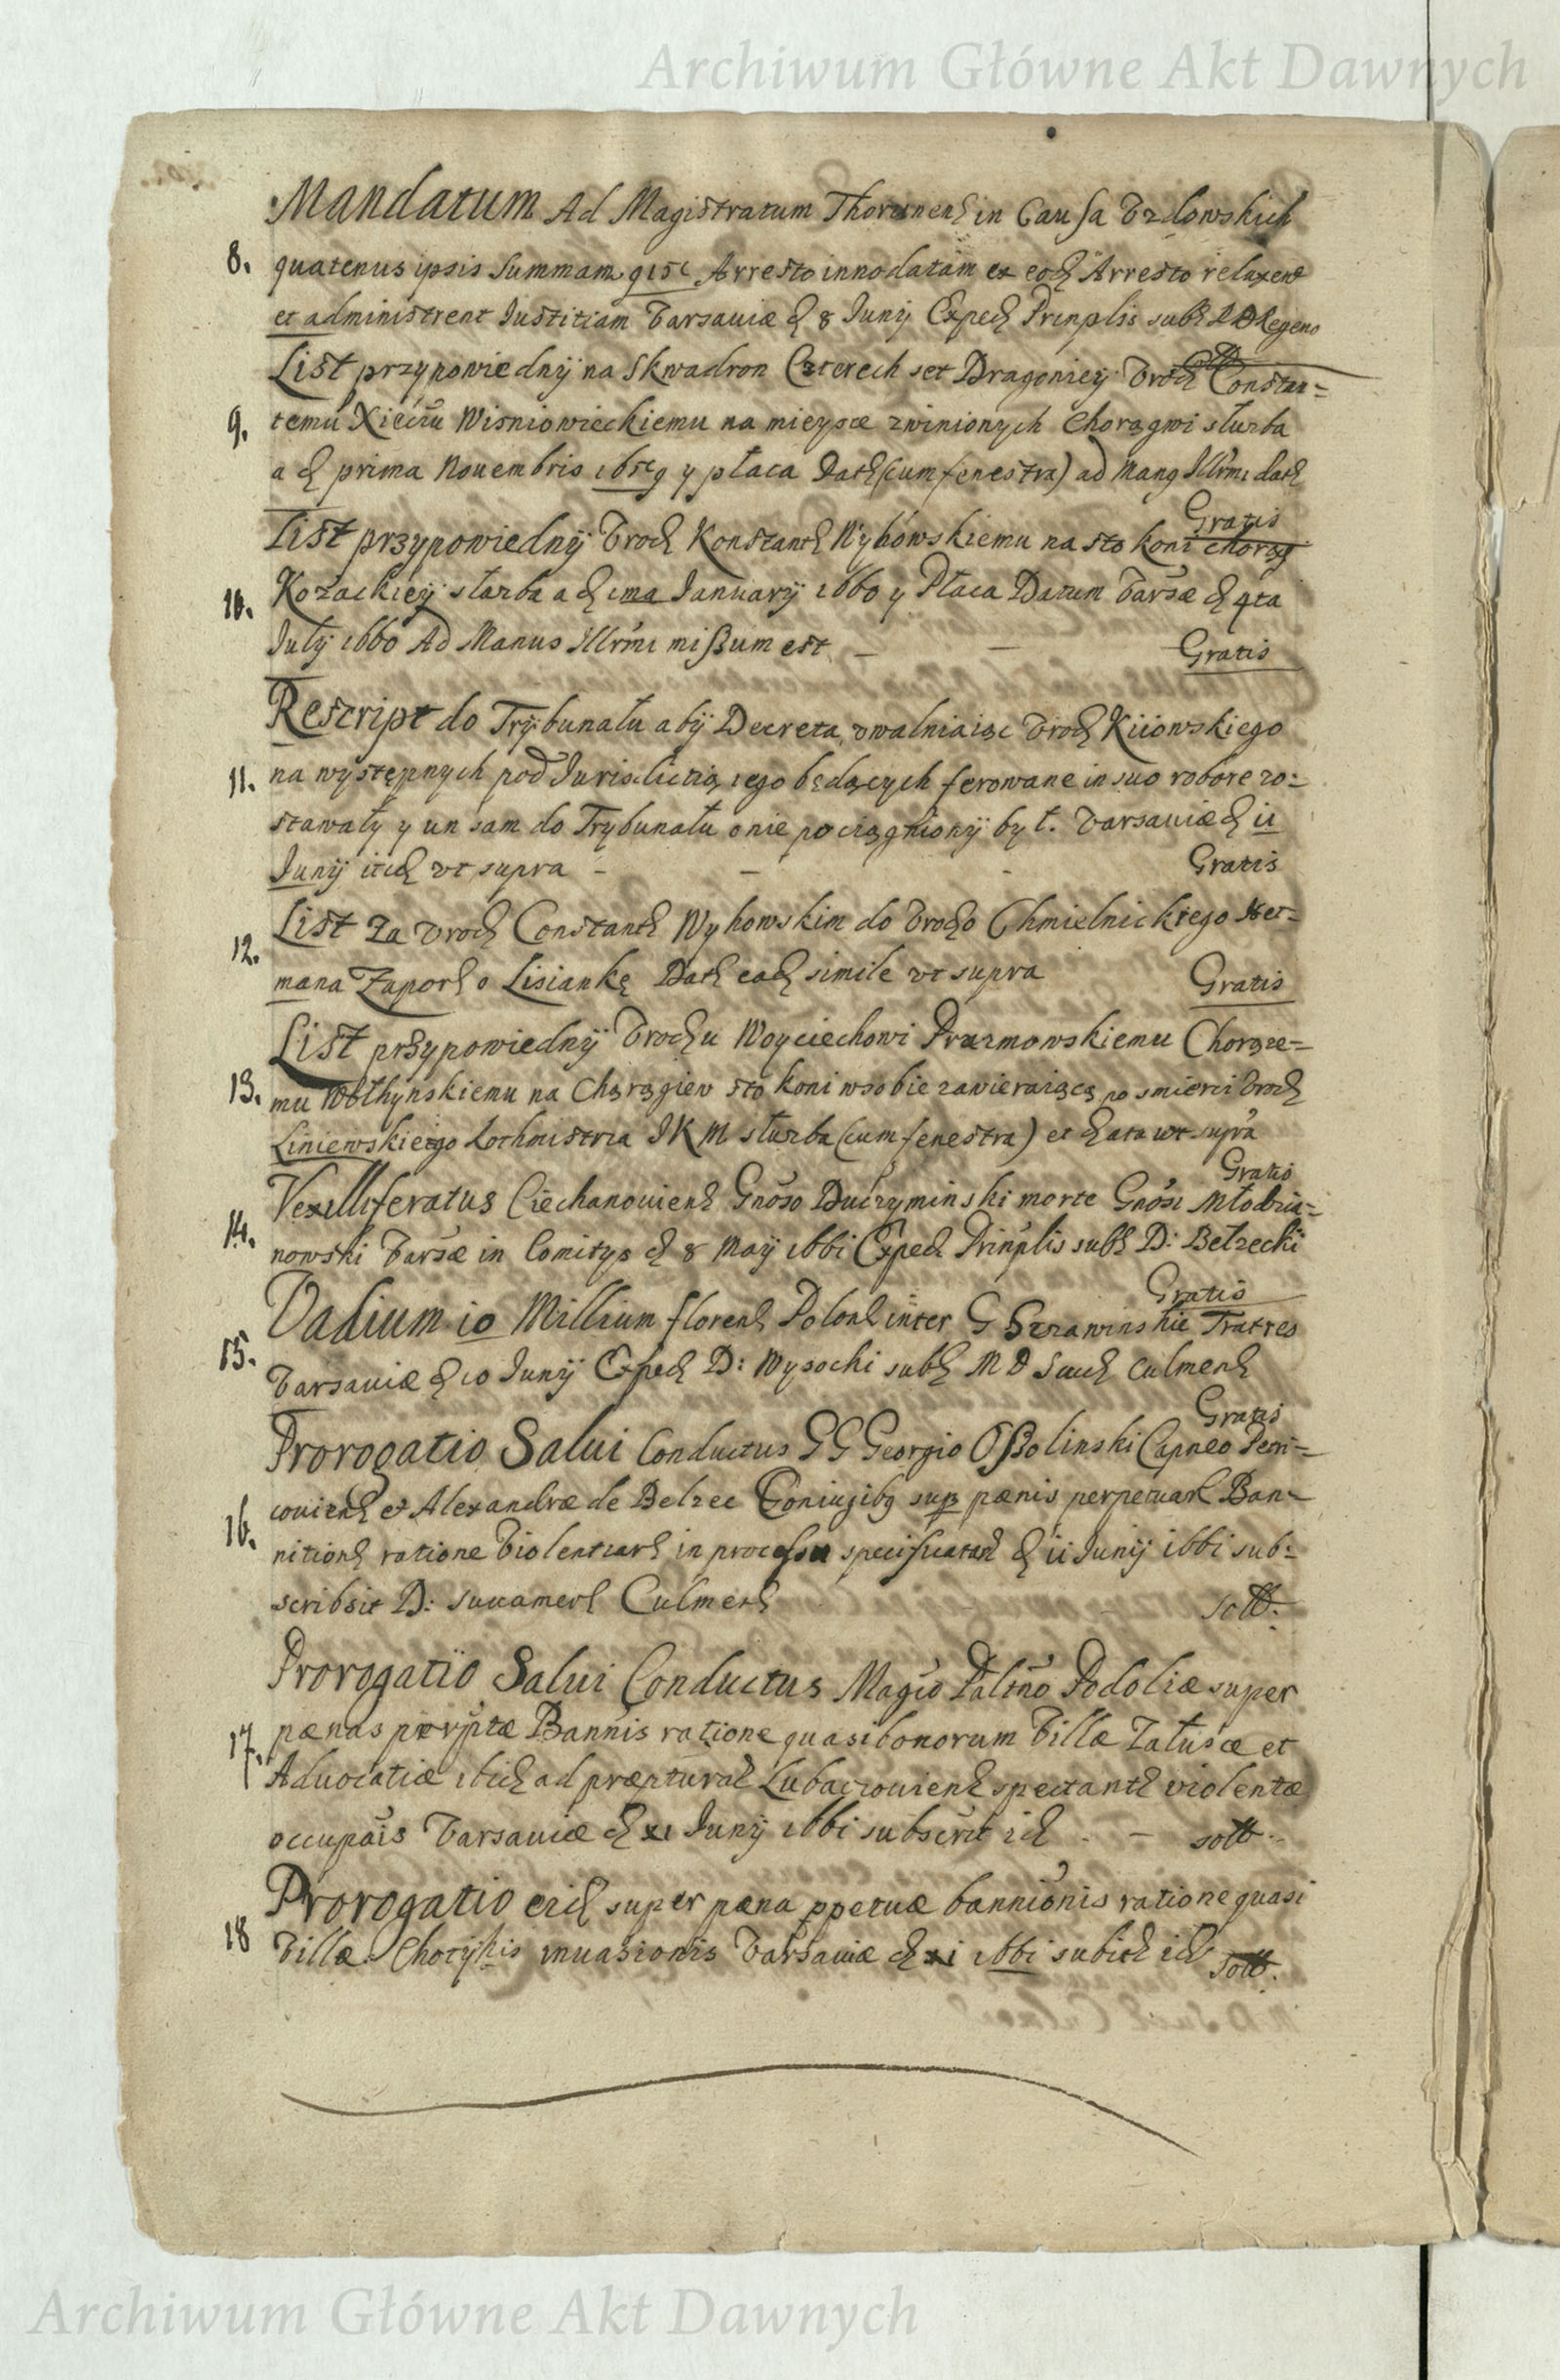 Archiwum Główne Akt Dawnych
Mandatum Ad Magistratum Thorunens in Causa
8. quatenus ipsis Summam Arresto innodatam ex eod Arresto relaxent
et administrent Iustitiam Varsaviæ d 8 Iunij Exped Prinplis subs
List przypowiednÿ na Skwadron Czterech set Dragoniey Vrod Constan=
9. temu Xięciu Wisniowieckiemu na mieysce zwinionych Chorągwi służba
a d prima Nouembris y płaca Dat (cum fenestra) ad Man Illrmi dat
Gratis
List przypowiednÿ Vrod Konstant Wyhowskiemu na sto koni chorąg
10. Kozackiey służba a d ima Ianuarij 1660 y Płaca Datum Varsæ d 4ta
Iulij 1660 Ad Manus Illrmi mißum est – – Gratis
Rescript do Trÿbunału abÿ Decreta vwalniaiąc Vrod Kiiowskiego
11. na występnych pod Iurisdictią iego będących ferowane in suo robore zo=
stawały y un sam do Trybunału o nie pociągnionÿ był. Varsaviæ d ii
Iunij vt supra – – Gratis
List Za Vrod Constant Wyhowskim do Vrodo Chmielnickiego Het=
12. mana Zapor o Lisiankę Dat ead simile vt supra Gratis
List przypowiednÿ Vrod u Woyciechowi Prazmowskiemu Chorąże=
13. mu Wołhynskiemu na Chorągiew sto koni w sobie zawieraiącą po smierci Vrod
Liniewskiego Rothmistrza J K M służba (cum fenestra) et data vt supra
Gratis
Vexilliferatus Ciechanouiens Gnoso morte Gnosi Młodzia=
14. nowski Varsæ in Comitys d 8 Maij 1661 Exped Prinplis subs D: Bełzecki
Gratis
Vadium 10 Millium floren Polon inter G Fratres
15. Varsaviæ d 10 Iunij Exped D: Wysocki subs M D Culmens
Gratis
Prorogatio Salui Conductus G G Georgio Oßolinski Capneo
16. et Alexandræ de Belzec Coniugibq sup pænis perpetuar Ban=
nition ratione Violentiar in processu specificatar d ii Iunij 1661 sub=
scribsit D: Culmens
Prorogatio Salui Conductus Magco Paltno Podoliæ super
17. pænas perptæ Bannis ratione quasi bonorum Villæ et
Aduocatiæ ibid ad præpturam spectant violentæ
occupais Varsaviæ d xi Iunij 1661 –
Prorogatio eid super pæna ppetuæ bannionis ratione quasi
18 Villæ inuasionis Varsaviæ d xi 1661
Archiwum Główne Akt Dawnych